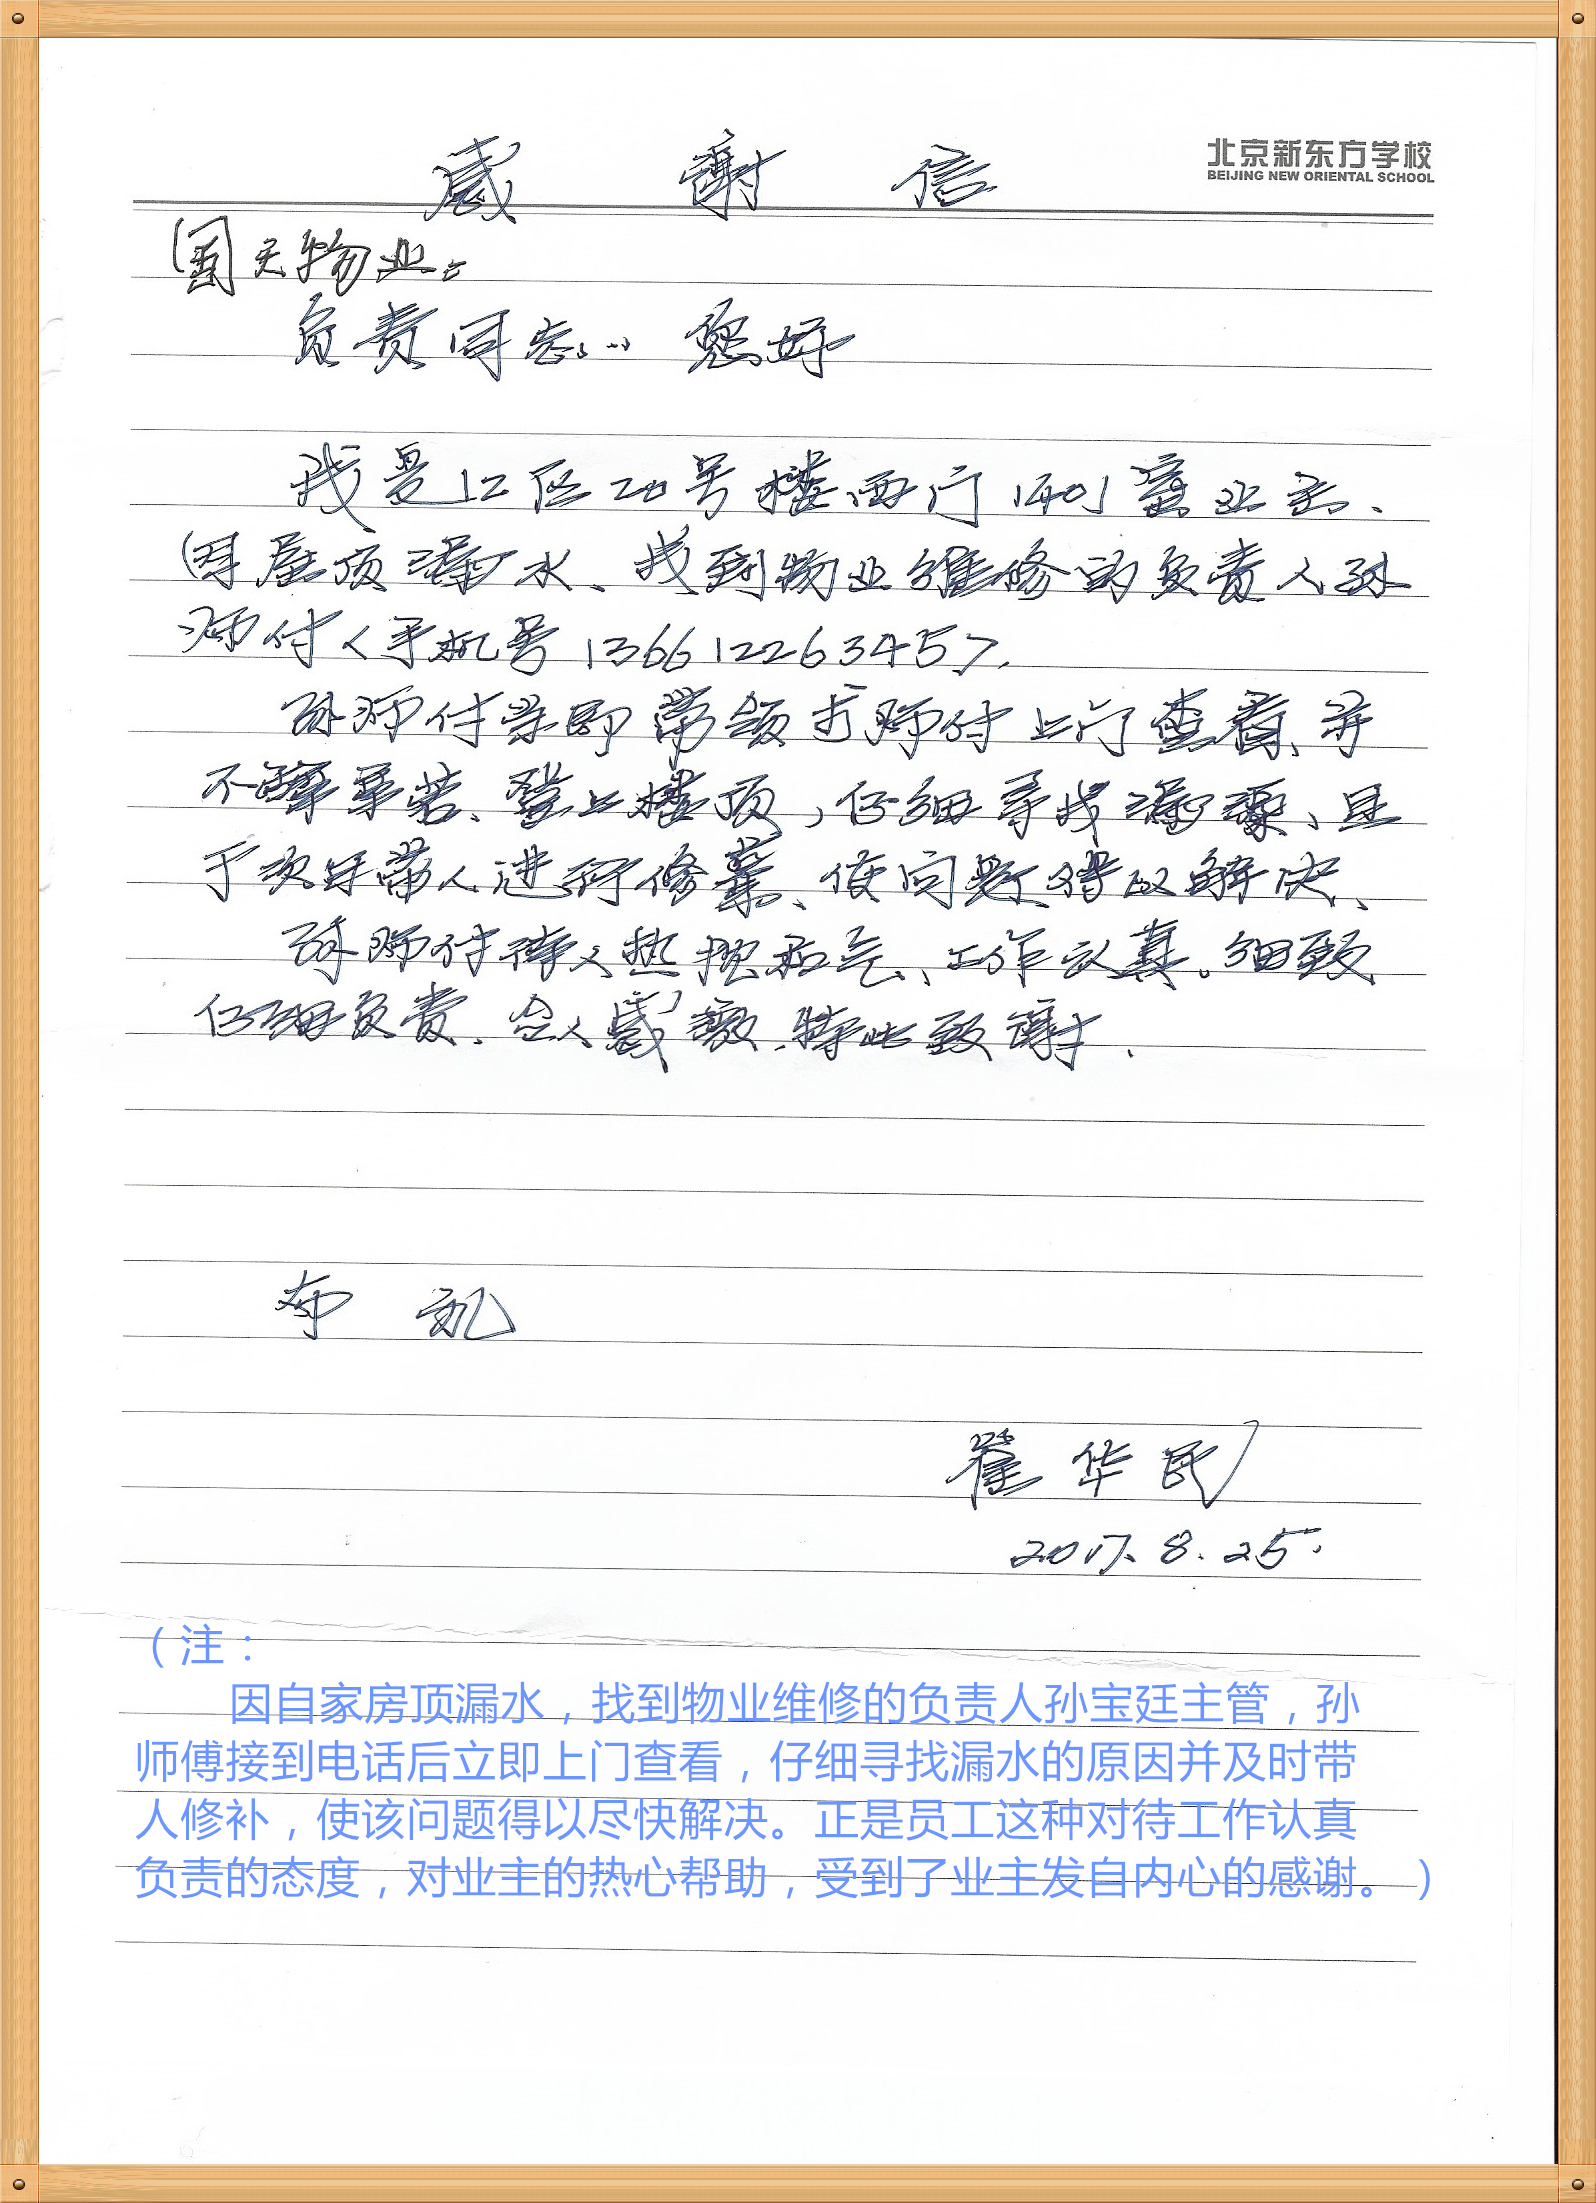 感谢信
北京新东方学校
BEIJING NEW ORIENTAL SCHOOL
国天物业：
负责同志：您好
我是12区20号楼西门1401室业主、
因屋顶漏水、找到物业维修的负责人孙
师付（手机号13661226345）.
孙师付立即带领于师付上门查看、并
不辞辛苦、登上楼顶，仔细寻找漏源、且
于次日带人进行修葺、使问题得以解决、
孙师付待人热忱和气、工作认真。细致
仔细负责、令人感激.特此致谢.
布礼
翟华民
2017.8.25.
（注：
因自家房顶漏水，找到物业维修的负责人孙宝廷主管，孙
师傅接到电话后立即上门查看，仔细寻找漏水的原因并及时带
人修补，使该问题得以尽快解决。正是员工这种对待工作认真
负责的态度，对业主的热心帮助，受到了业主发自内心的感谢。）